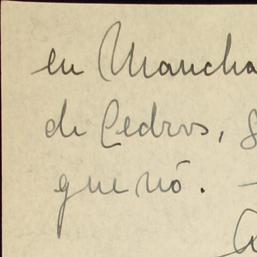 en Mancha
de Cedros,
que nó. —